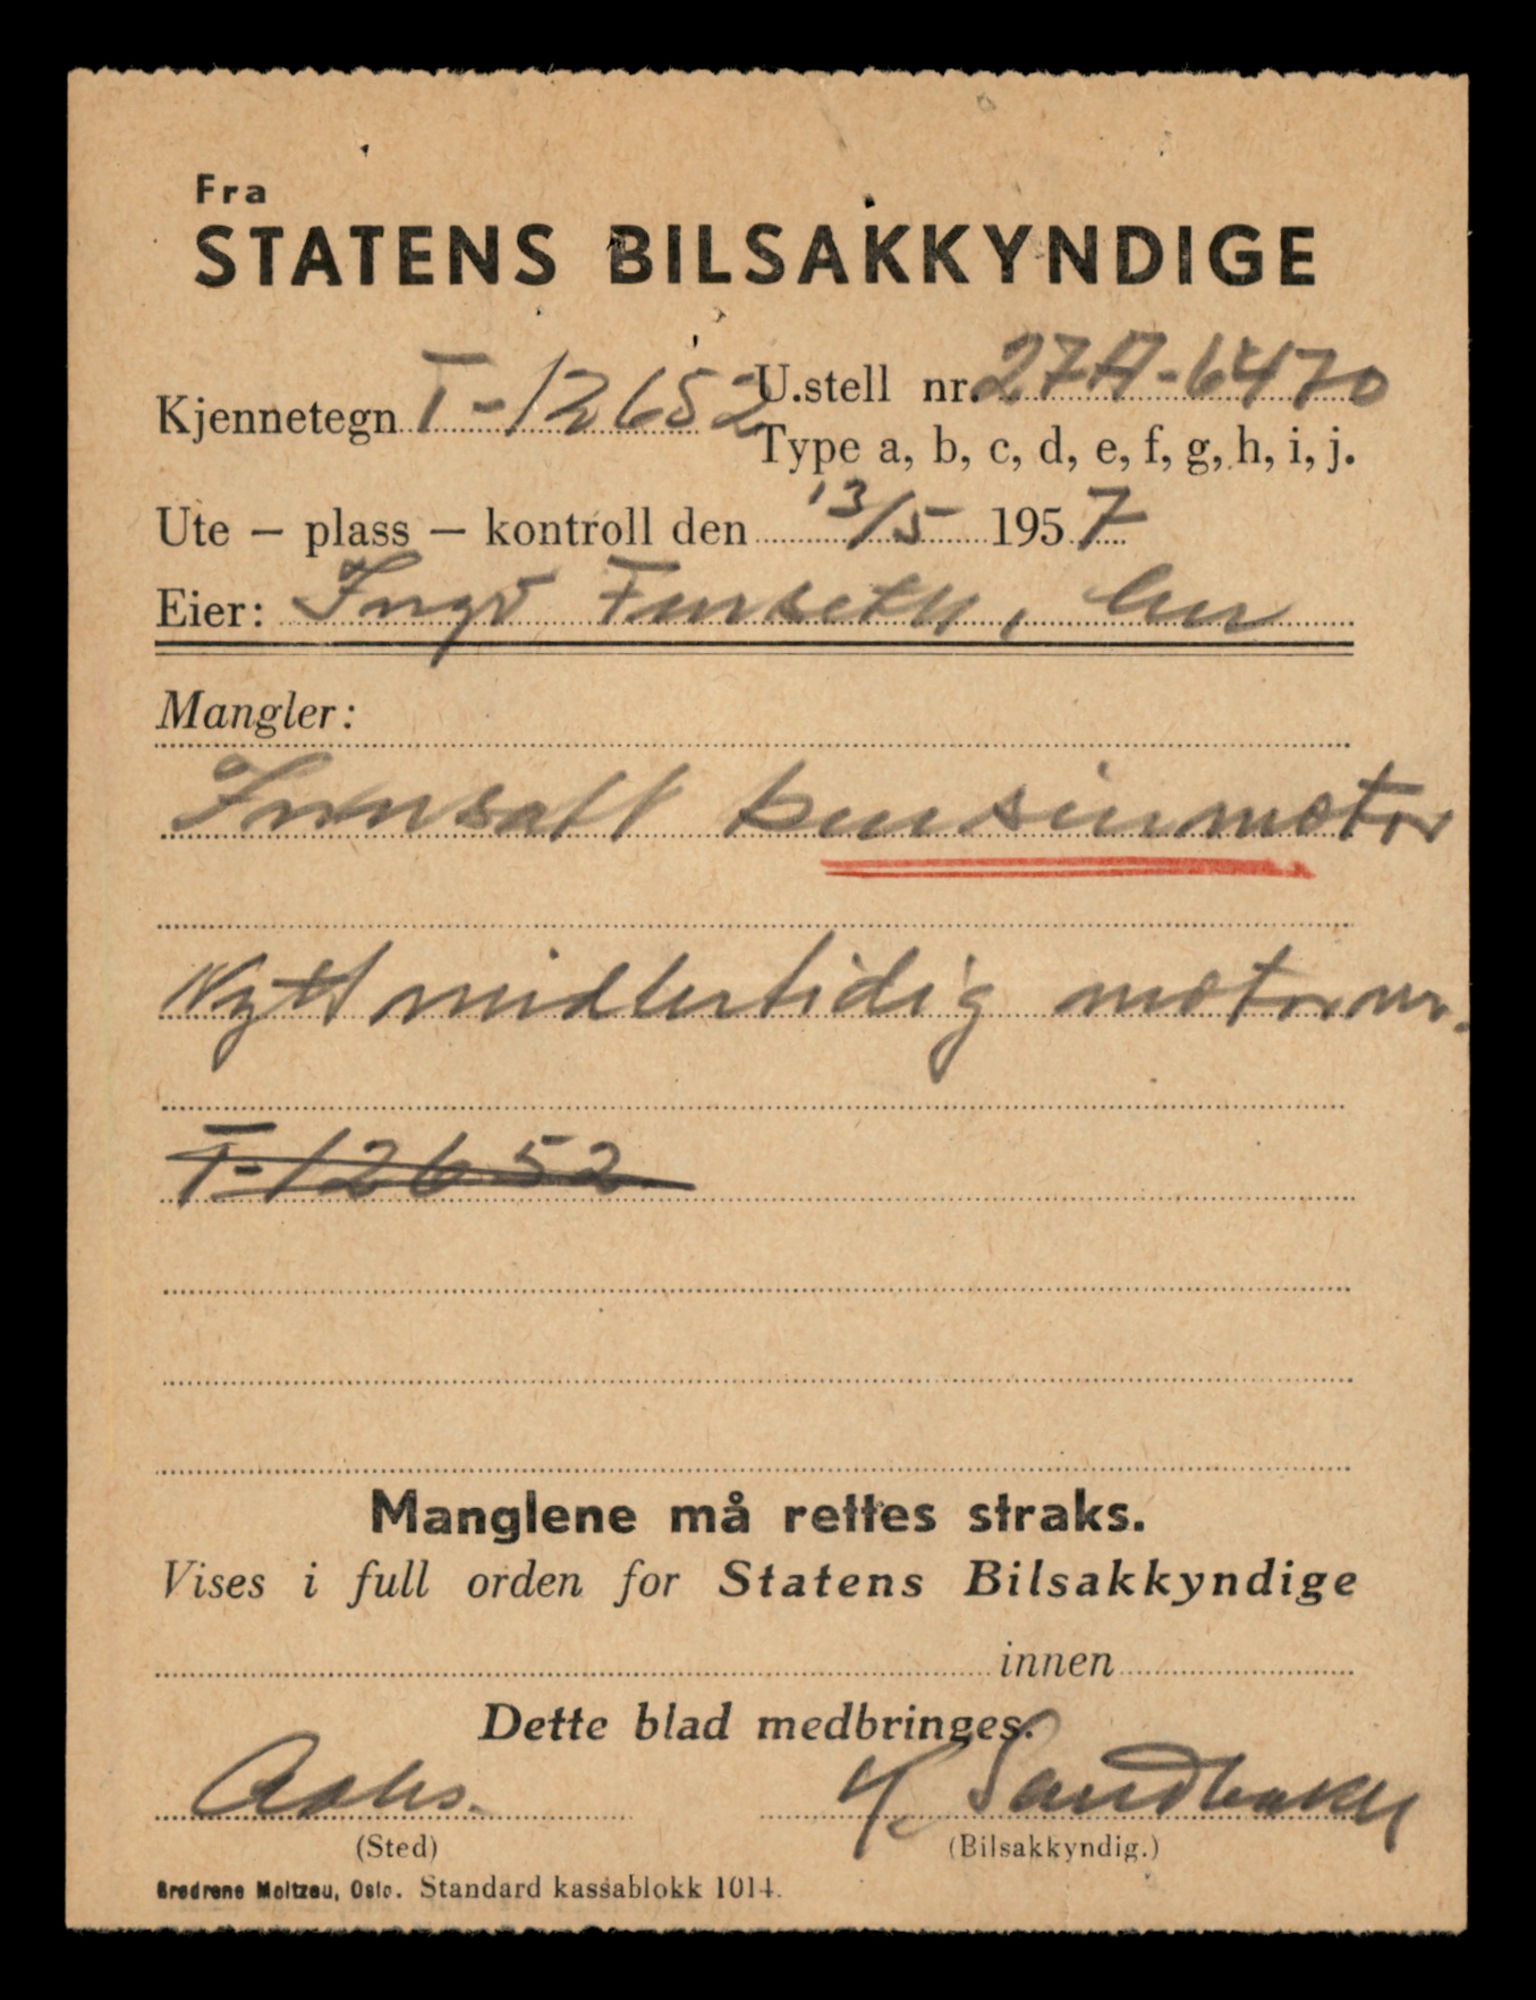 Fra
STATENS BILSAKKYNDIGE
Kjennetegn T-12652 U.stell nr. 27A-6470
Type a, b, c, d, e, f, g, h, i, j.
Ute – plass – kontroll den 13/5 1957
Eier: Ingv Furseth,
Mangler:
Innsatt bensinmotor
Nytt midlertidig motornr.
T-12652
Manglene må rettes straks.
Vises i full orden for Statens Bilsakkyndige
innen
Dette blad medbringes.
K. Sandbakk
(Sted) (Bilsakkyndig.)
Brødrene Moltzau, Oslo. Standard kassablokk 1014.